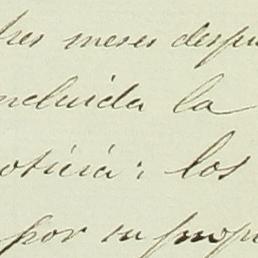 tres meses despu
ncluida la
oticia: los
por su prop